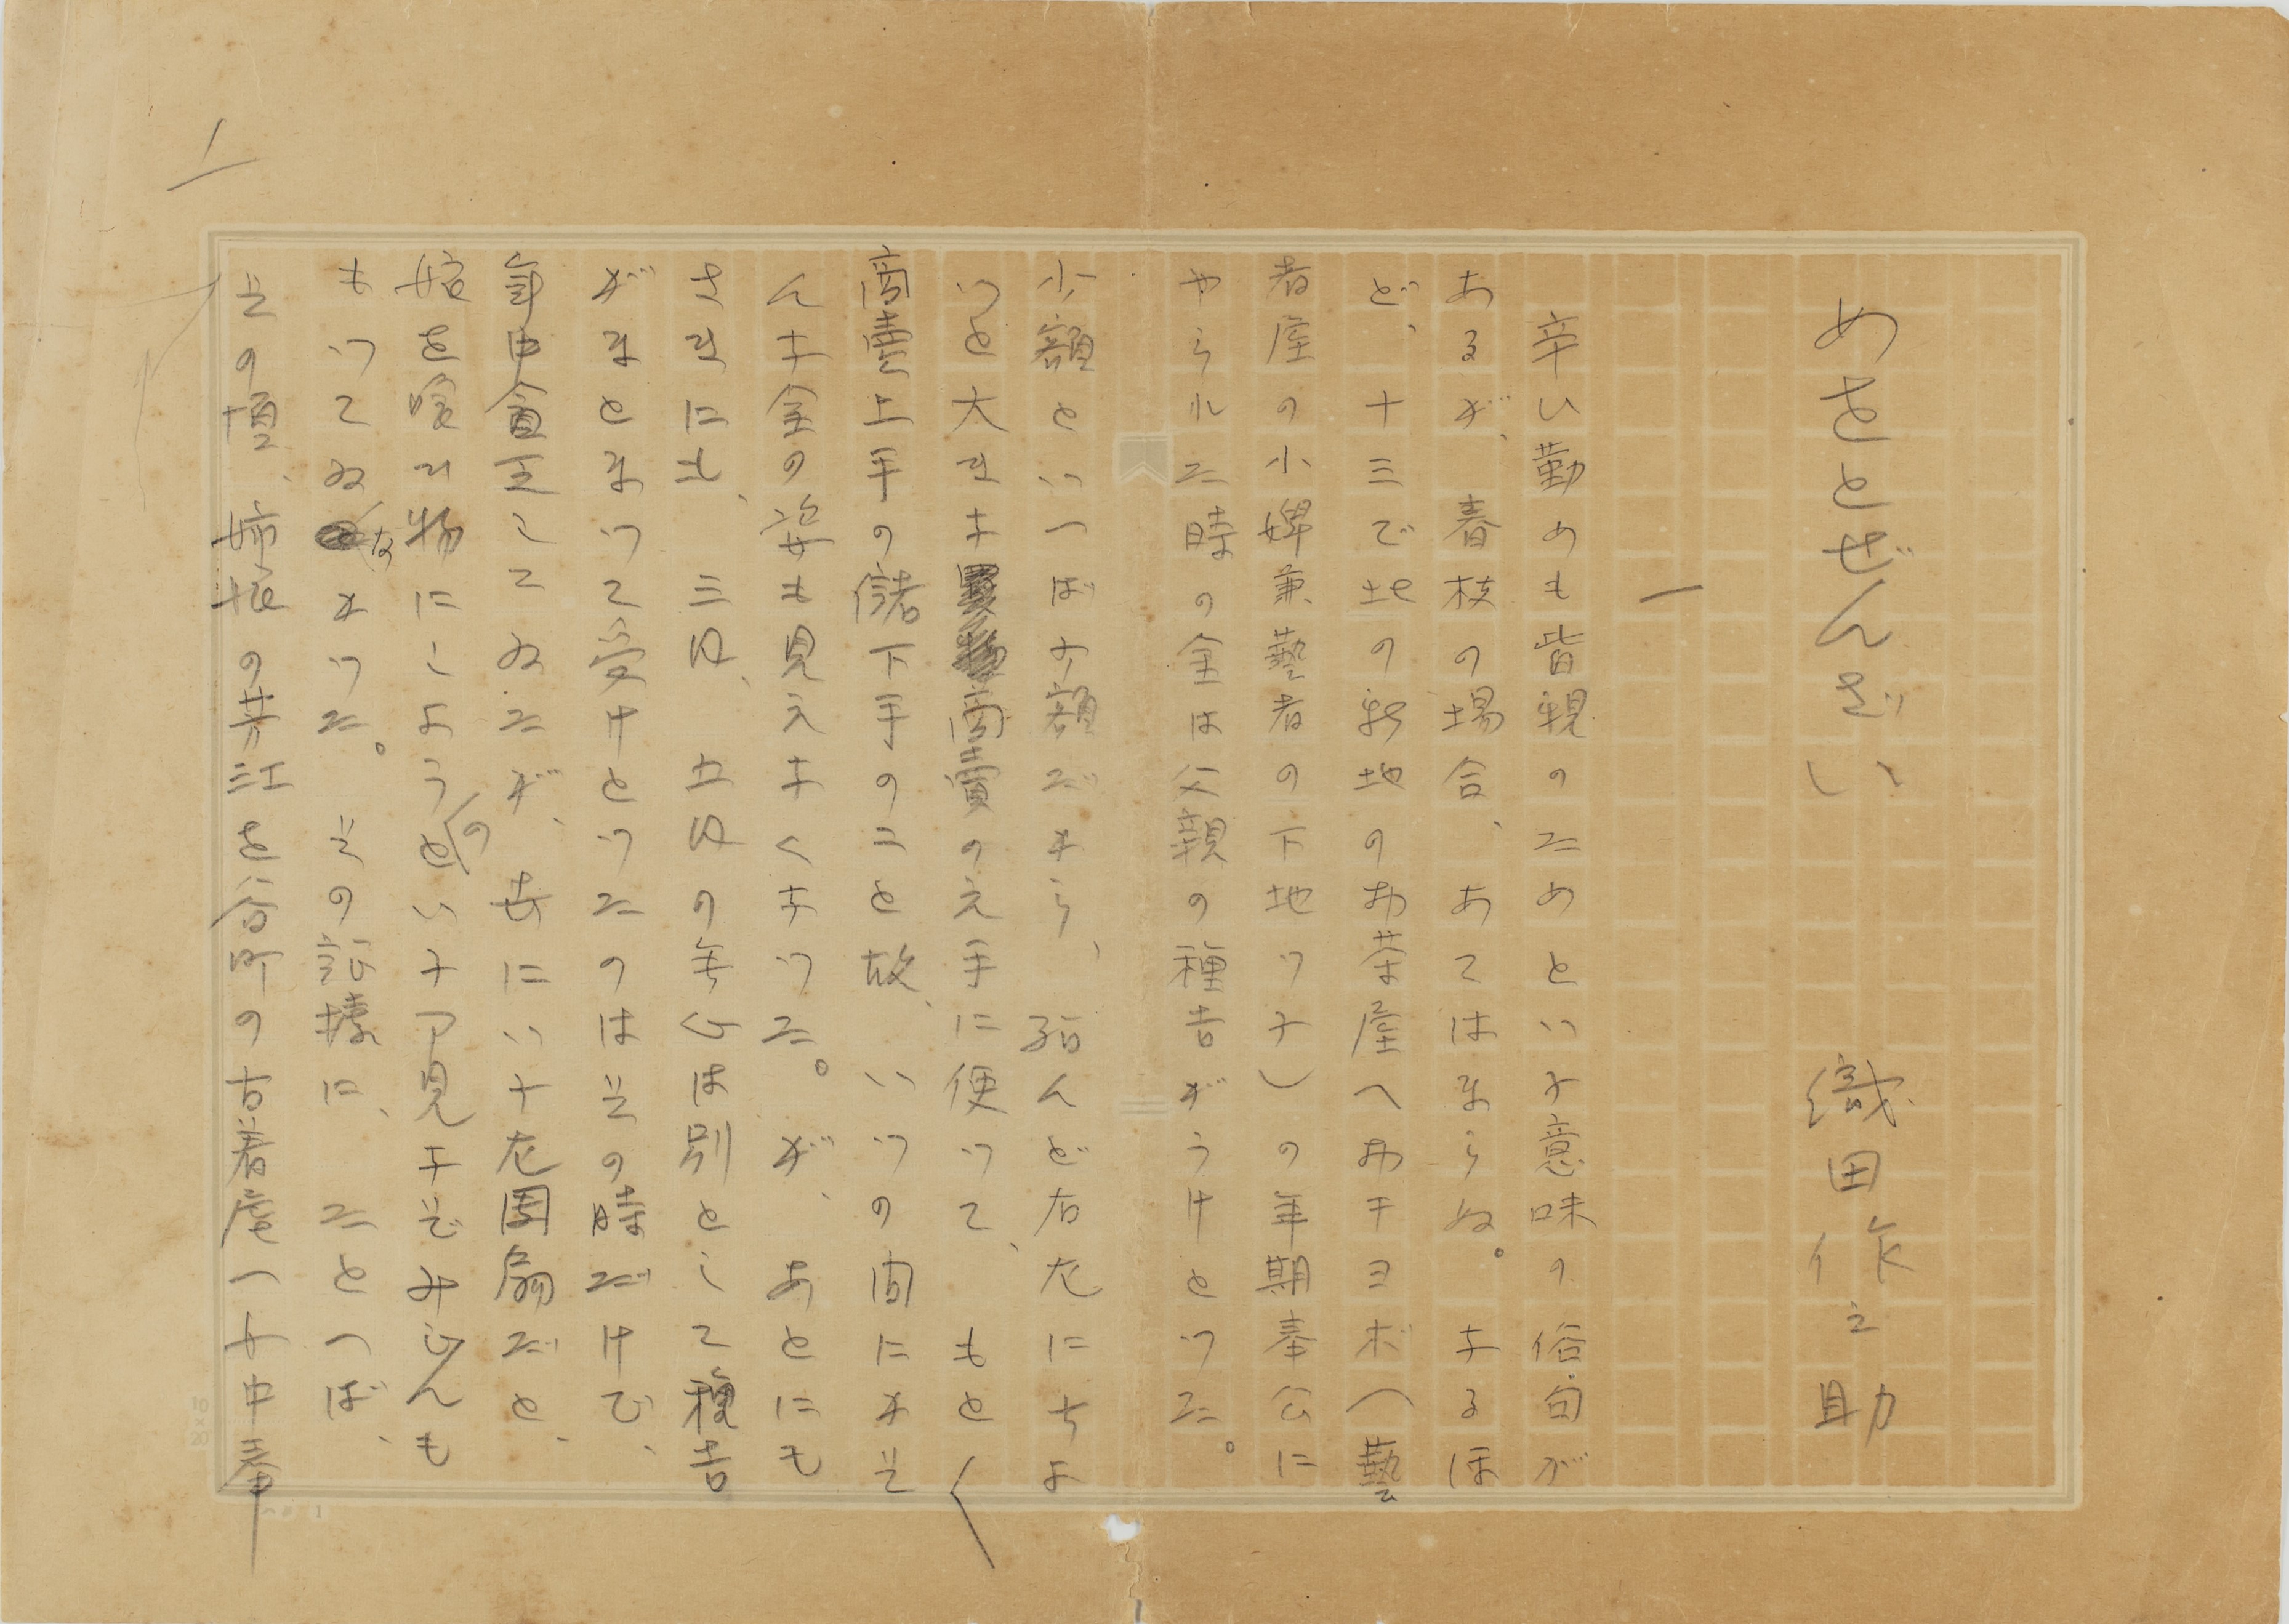 1
めをとぜんざい
織田作之助
一
辛い勤めも皆親のためといふ意味の俗句が
あるが、春枝の場合、あてはまらぬ。なるほ
ど、十三で北の新地のお茶屋へおチヨボ(藝
者屋の小婢兼藝者の下地ッ子)の年期奉公に
やられた時の金は父親の種吉がうけとった。
小額といへば小額だから、殆んど右左にちよ
いと大きな商賣の元手に使って、もと〱
商賣上手の儲下手のこと故、いつの間にかそ
んな金の姿も見えなくなった。が、あとにも
さきにも、三円、五円の無心は別として種吉
がまとまって受けとったのはその時だけで、
年中貧乏してゐたが、世にいふ左團扇だと、
娘を喰ひ物にしようとのいふ了見などみぢんも
もってゐなかった。その証據に、たとへば、
その頃、姉娘の芳江を谷町の古着屋へ女中奉
10×20